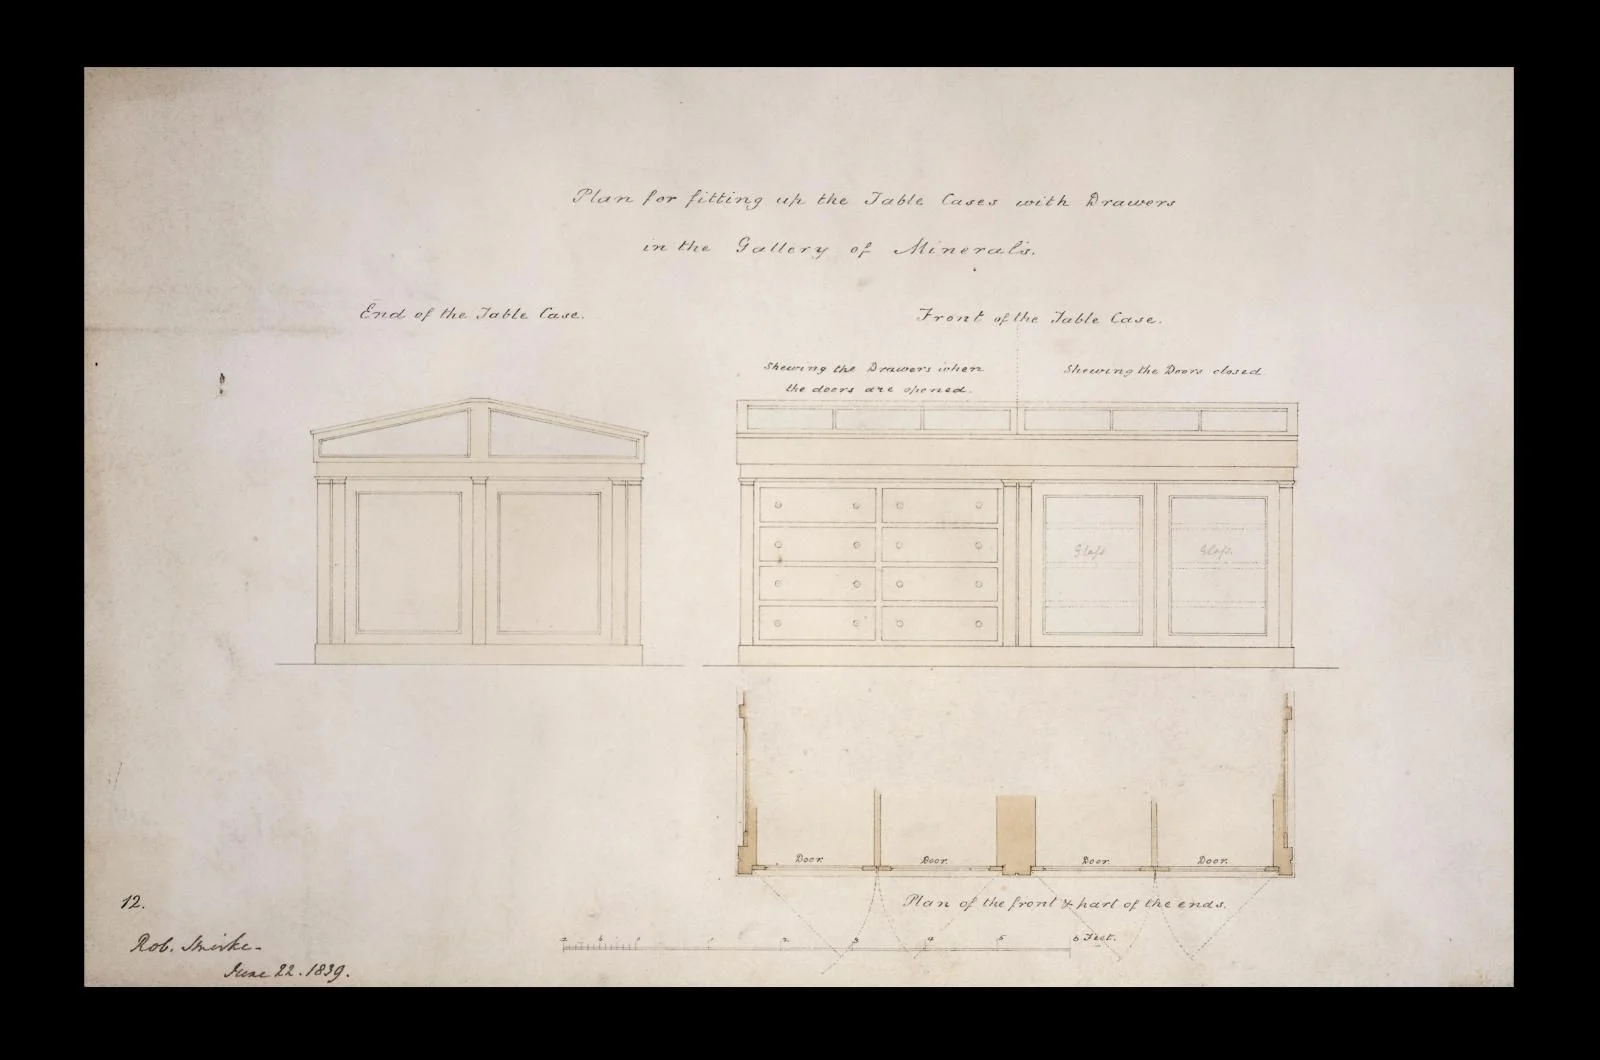 Plan for fitting up the Table Cases with Drawers
in the Gallery of Minerals.
End of the Table Case.
Front of the Table Case.
Shewing the Drawers when
the doors are opened.
Shewing the Doors closed.
Glass
Glass.
Door.
Door.
Door.
Door.
Plan of the front & part of the ends.
12 6 1 2 3 4 5 6 Feet.
12.
Rob. Smirke
June 22. 1839.